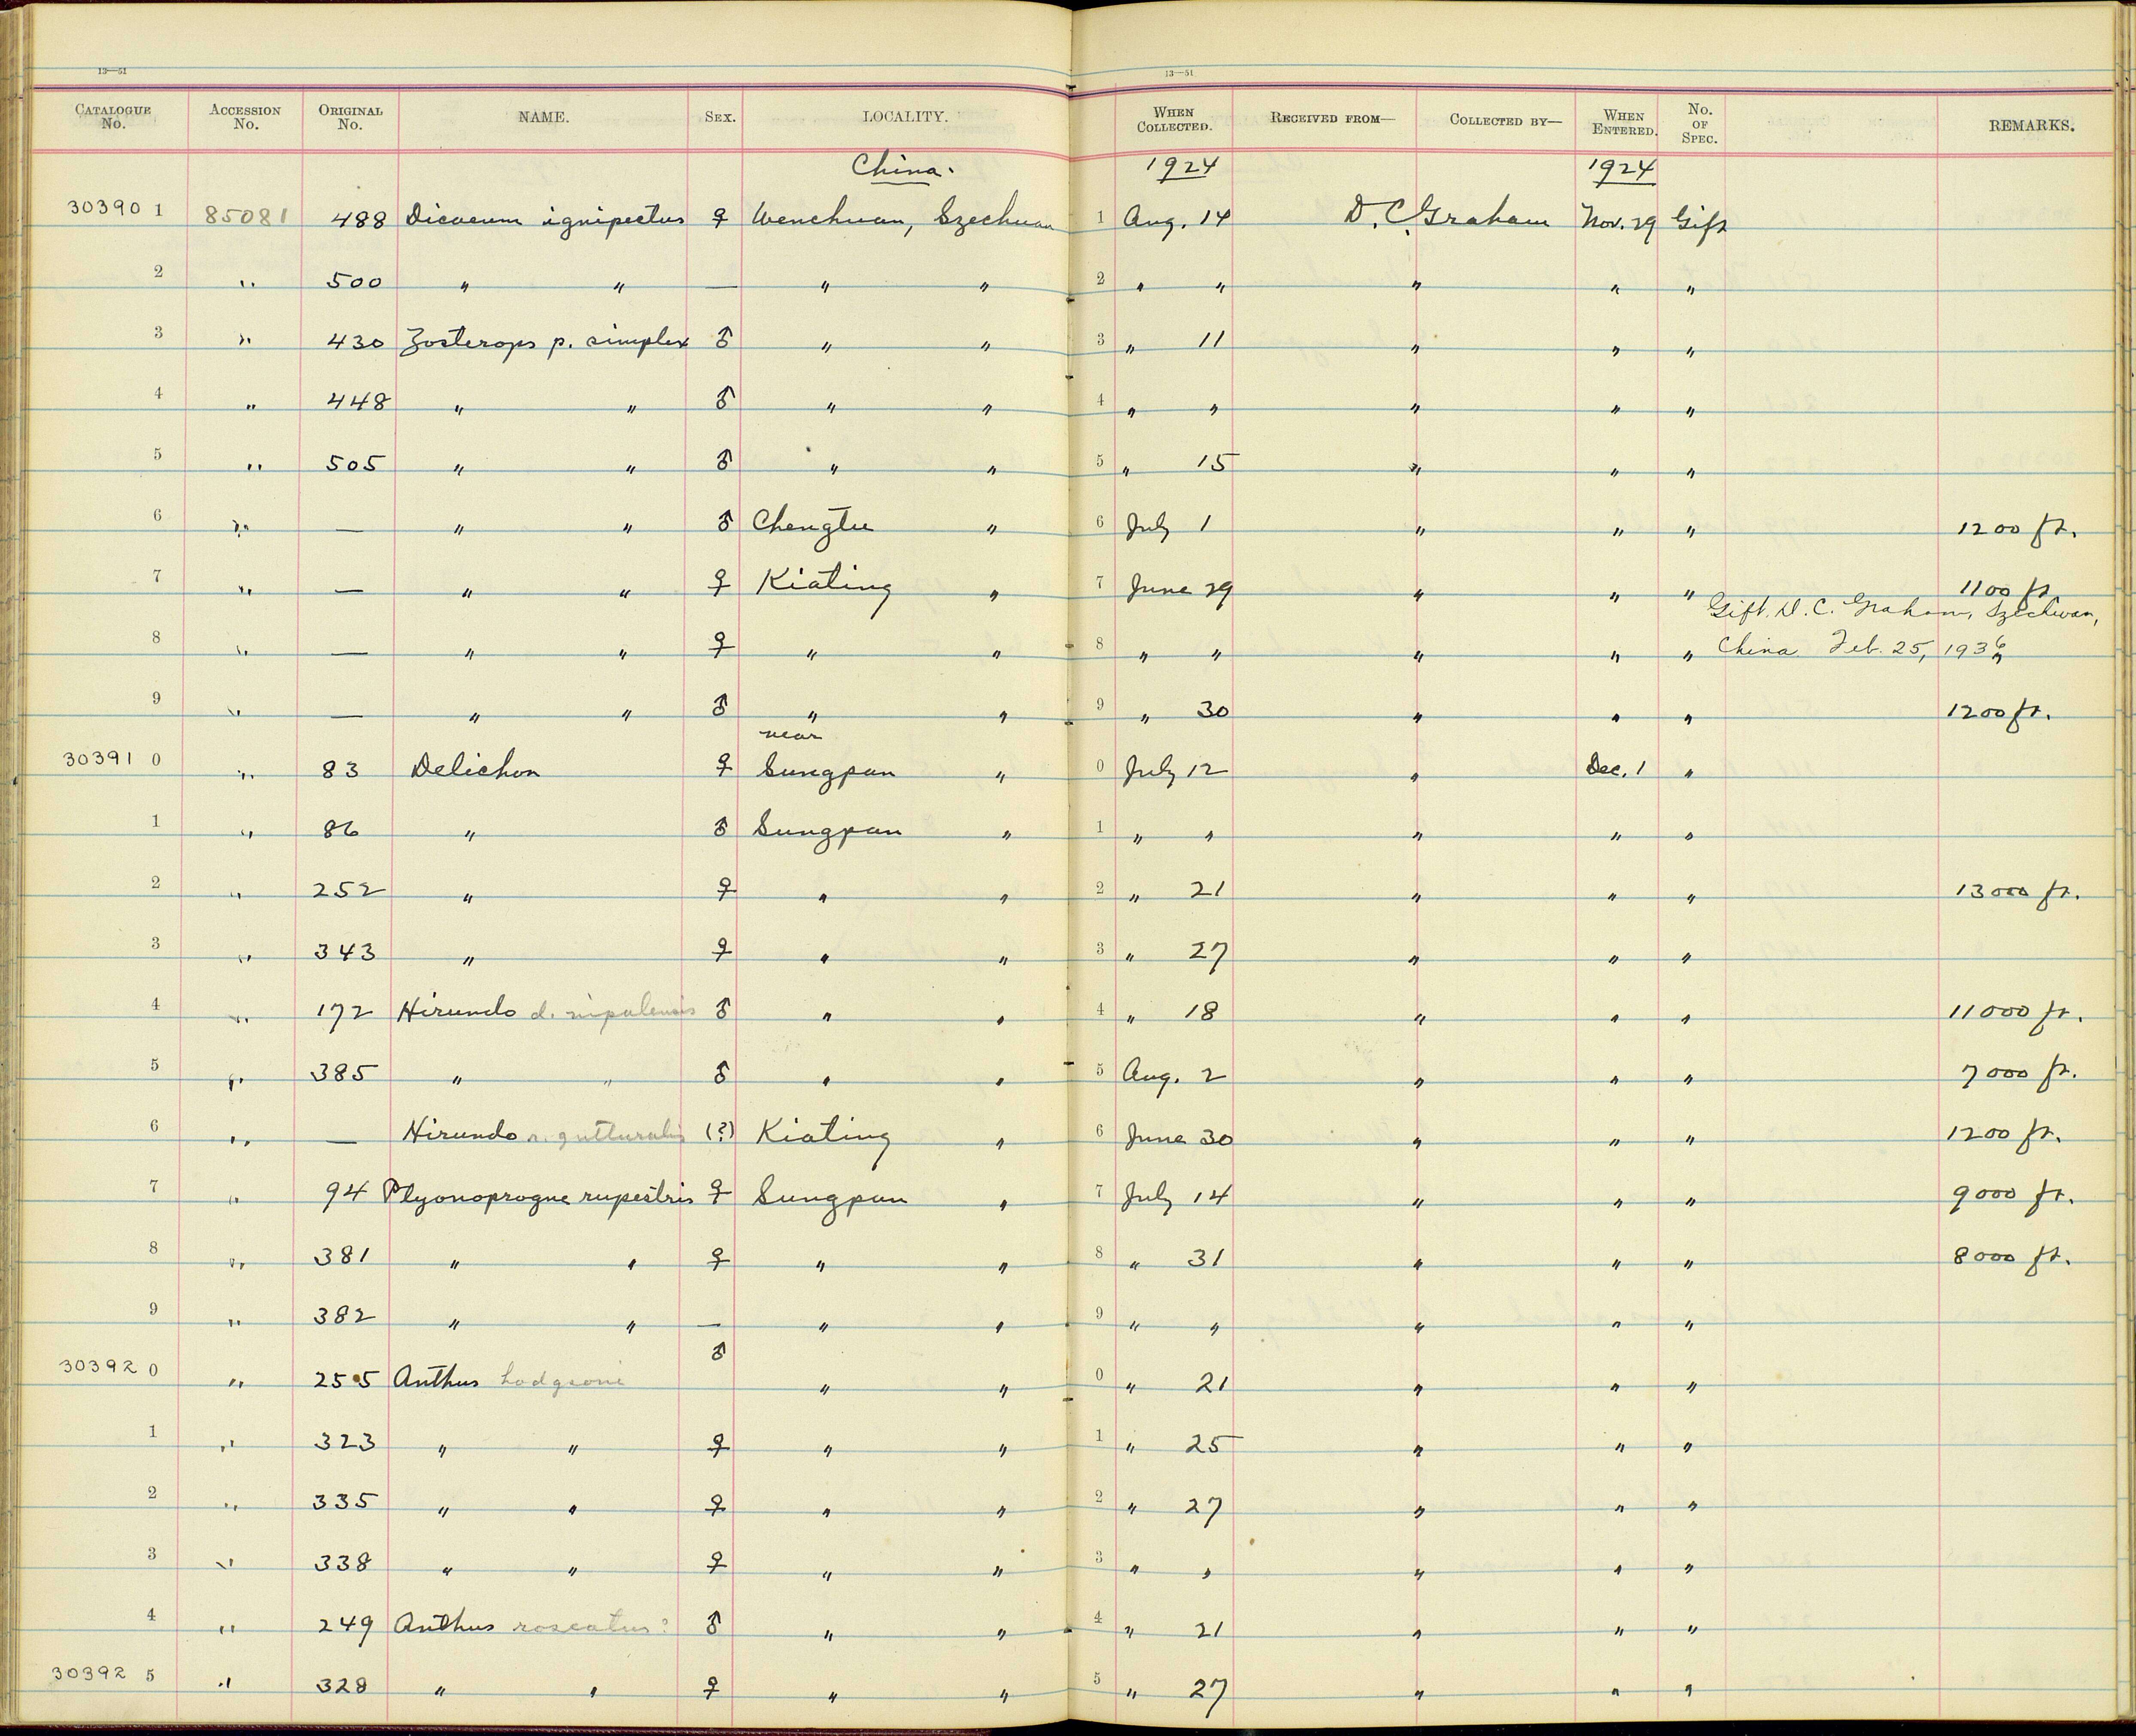 13—51 13—51
CATALOGUE No. ACCESSION No. ORIGINAL No. NAME. SEX. LOCALITY. WHEN COLLECTED. RECEIVED FROM— COLLECTED BY— WHEN ENTERED. No. OF SPEC. REMARKS.
China. 1924 1924
30390 1 85081 488 Dicaeum ignipectus ♀ Wenchuan, Szechuan 1 Aug. 14 D. C. Graham Nov. 29 Gift
2 " 500 " " — " " 2 " " " " "
3 " 430 Zosterops p. simplex ♂ " " 3 " 11 " " "
4 " 448 " " ♂ " " 4 " " " " "
5 " 505 " " ♂ " " 5 " 15 " " "
6 " — " " ♂ Chengtu " 6 July 1 " " " 1200 ft.
7 " — " " ♀ Kiating " 7 June 29 " " " 1100 ft
Gift. D. C. Graham, Szechwan,
8 " — " " ♀ " " 8 " " " " " China Feb. 25, 1936 "
9 " — " " ♂ " " 9 " 30 " " " 1200 ft.
near
30391 0 " 83 Delichon ♀ Sungpan " 0 July 12 " Dec. 1 "
1 " 86 " ♂ Sungpan " 1 " " " " "
2 " 252 " ♀ " " 2 " 21 " " " 13000 ft.
3 " 343 " ♀ " " 3 " 27 " " "
4 " 172 Hirundo d. nipalensis ♂ " " 4 " 18 " " " 11000 ft.
5 " 385 " " ♂ " " 5 Aug. 2 " " " 7000 ft.
6 " — Hirundo r. gutturalis (?) Kiating " 6 June 30 " " " 1200 ft.
7 " 94 Ptyonoprogne rupestris ♀ Sungpan " 7 July 14 " " " 9000 ft.
8 " 381 " " ♀ " " 8 " 31 " " " 8000 ft.
9 " 382 " " — " " 9 " " " " "
30392 0 " 255 Anthus hodgsoni ♂ " " 0 " 21 " " "
1 " 323 " " ♀ " " 1 " 25 " " "
2 " 335 " " ♀ " " 2 " 27 " " "
3 " 338 " " ♀ " " 3 " " " " "
4 " 249 Anthus roseatus? ♂ " " 4 " 21 " " "
30392 5 " 328 " " ♀ " " 5 " 27 " " "